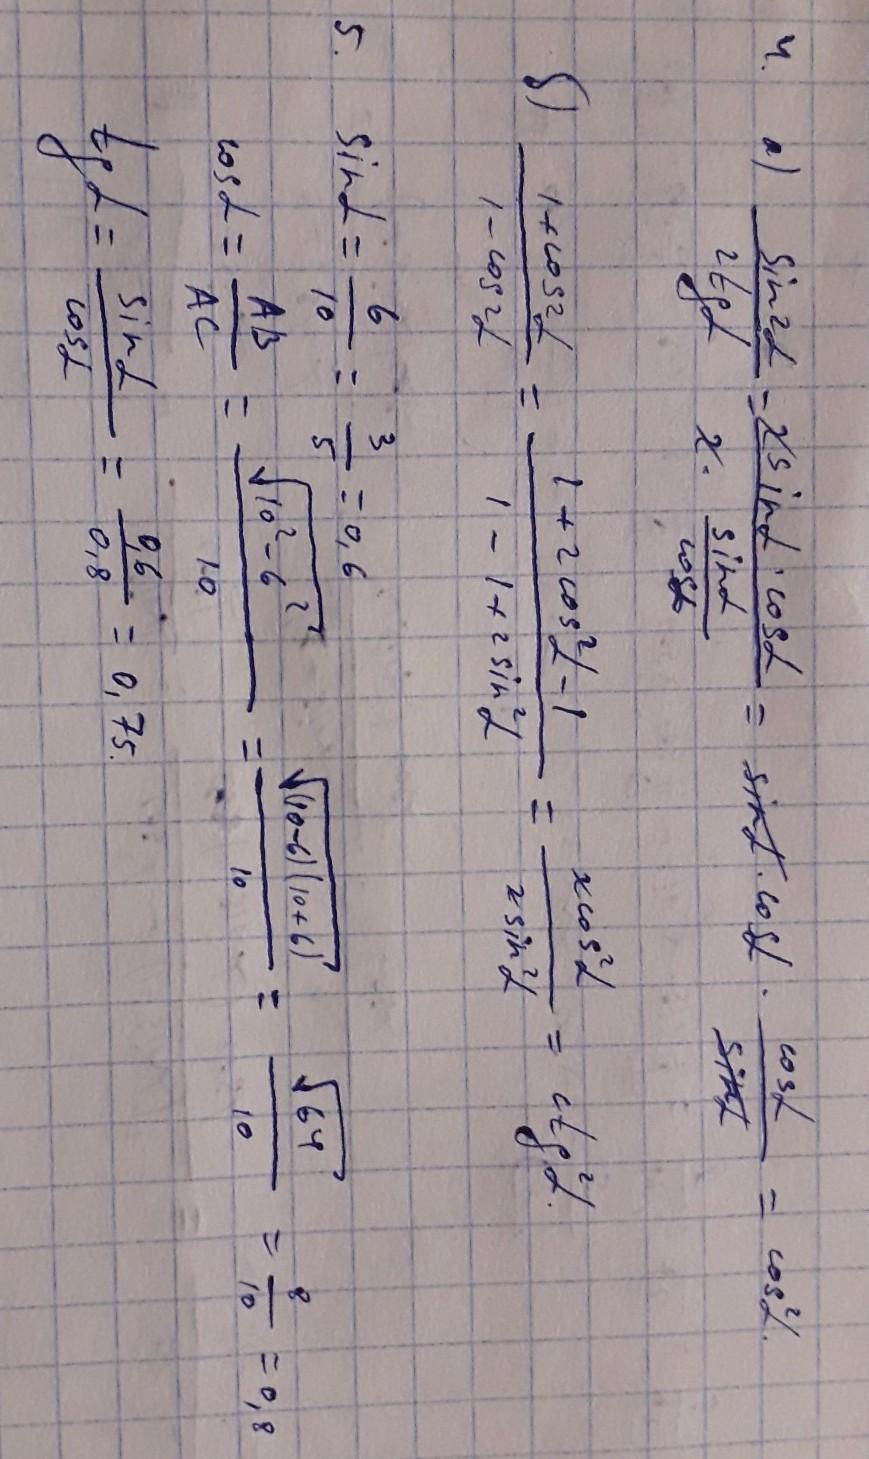 4. а) sin2α / 2tgα = 2sinα·cosα / 2·sinα/cosα = sinα·cosα · cosα/sinα = cos²α.
б) 1+cos2α / 1-cos2α = 1+2cos²α-1 / 1-1+2sin²α = 2cos²α / 2sin²α = ctg²α.
5. sinα = 6/10 = 3/5 = 0,6
cosα = AB/AC = √10²-6² / 10 = √(10-6)(10+6) / 10 = √64 / 10 = 8/10 = 0,8
tgα = sinα/cosα = 0,6/0,8 = 0,75.